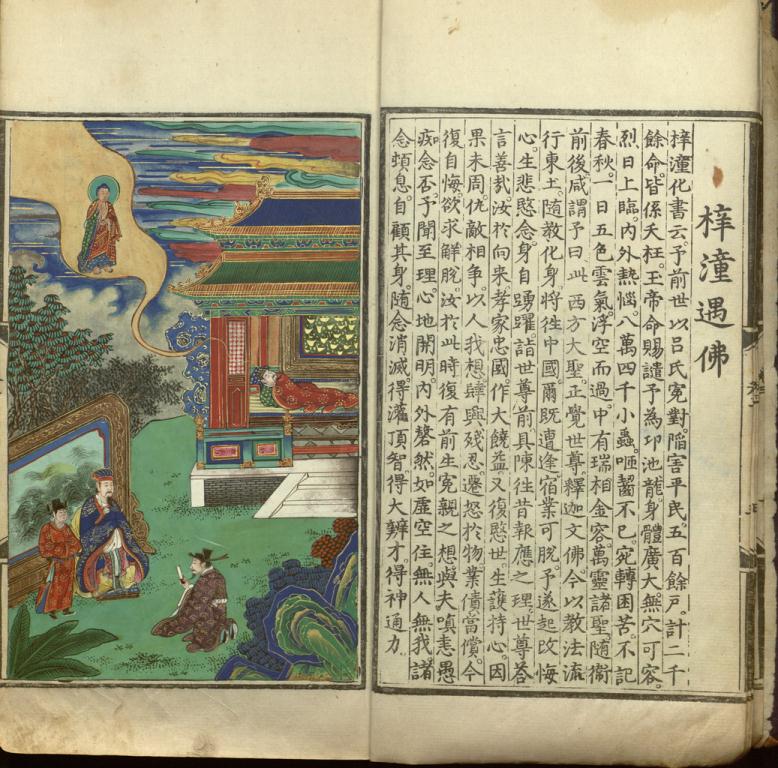 梓潼遇佛
梓潼化書云予前世以呂氏寃對陷害平民五百餘戶計二千
餘命皆係夭枉王帝命賜譴予為邛池龍身體廣大無穴可容
烈日上臨内外熱惱八萬四千小蟲咂齧不已宛轉困苦不記
春秋一日五色雲氣浮空而過中有瑞相金容萬靈諸聖隨衞
前後咸謂予曰此西方大聖正覺世尊釋迦文佛今以教法流
行東土隨教化身將往中國爾既遭逢宿業可脫予遂起改悔
心生悲愍念身自踴躍詣世尊前具陳往昔報應之理世尊荅
言善哉汝於向來孝家忠國作大饒益又復愍世生護持心因
果未周仇敵相爭以人我想肆興殘忍遷怒於物業債當償今
復自悔欲求解脫汝於此時復有前生寃親之想與夫嗔恚愚
癡念否予聞至理心地開明内外罄然如虛空住無人無我諸
念頓息自顧其身隨念消滅得灌頂智得大辨才得神通力